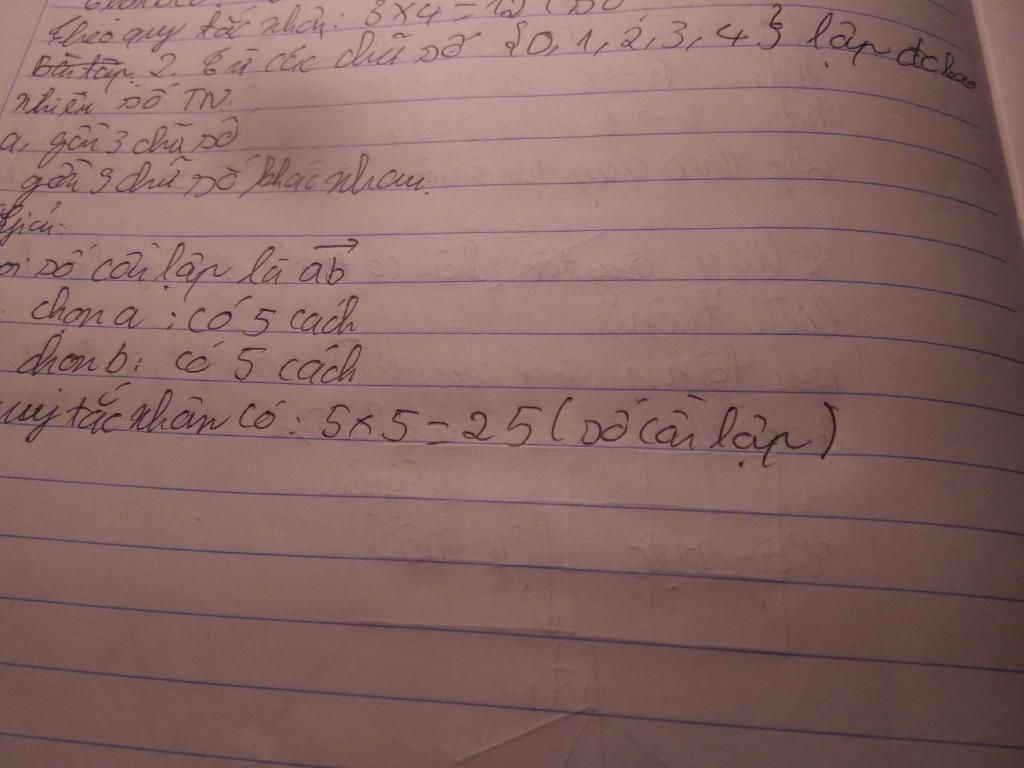 theo quy tắc nhân: 3 x 4 = 12 (số
Bài tập 2. Từ các chữ số {0, 1, 2, 3, 4} lập đc bao
nhiêu số TN.
a, gồm 3 chữ số
gồm 3 chữ số khác nhau.
Giải:
số cần lập là ab
chọn a : có 5 cách
chọn b : có 5 cách
quy tắc nhân có : 5 x 5 = 25 (số cần lập)